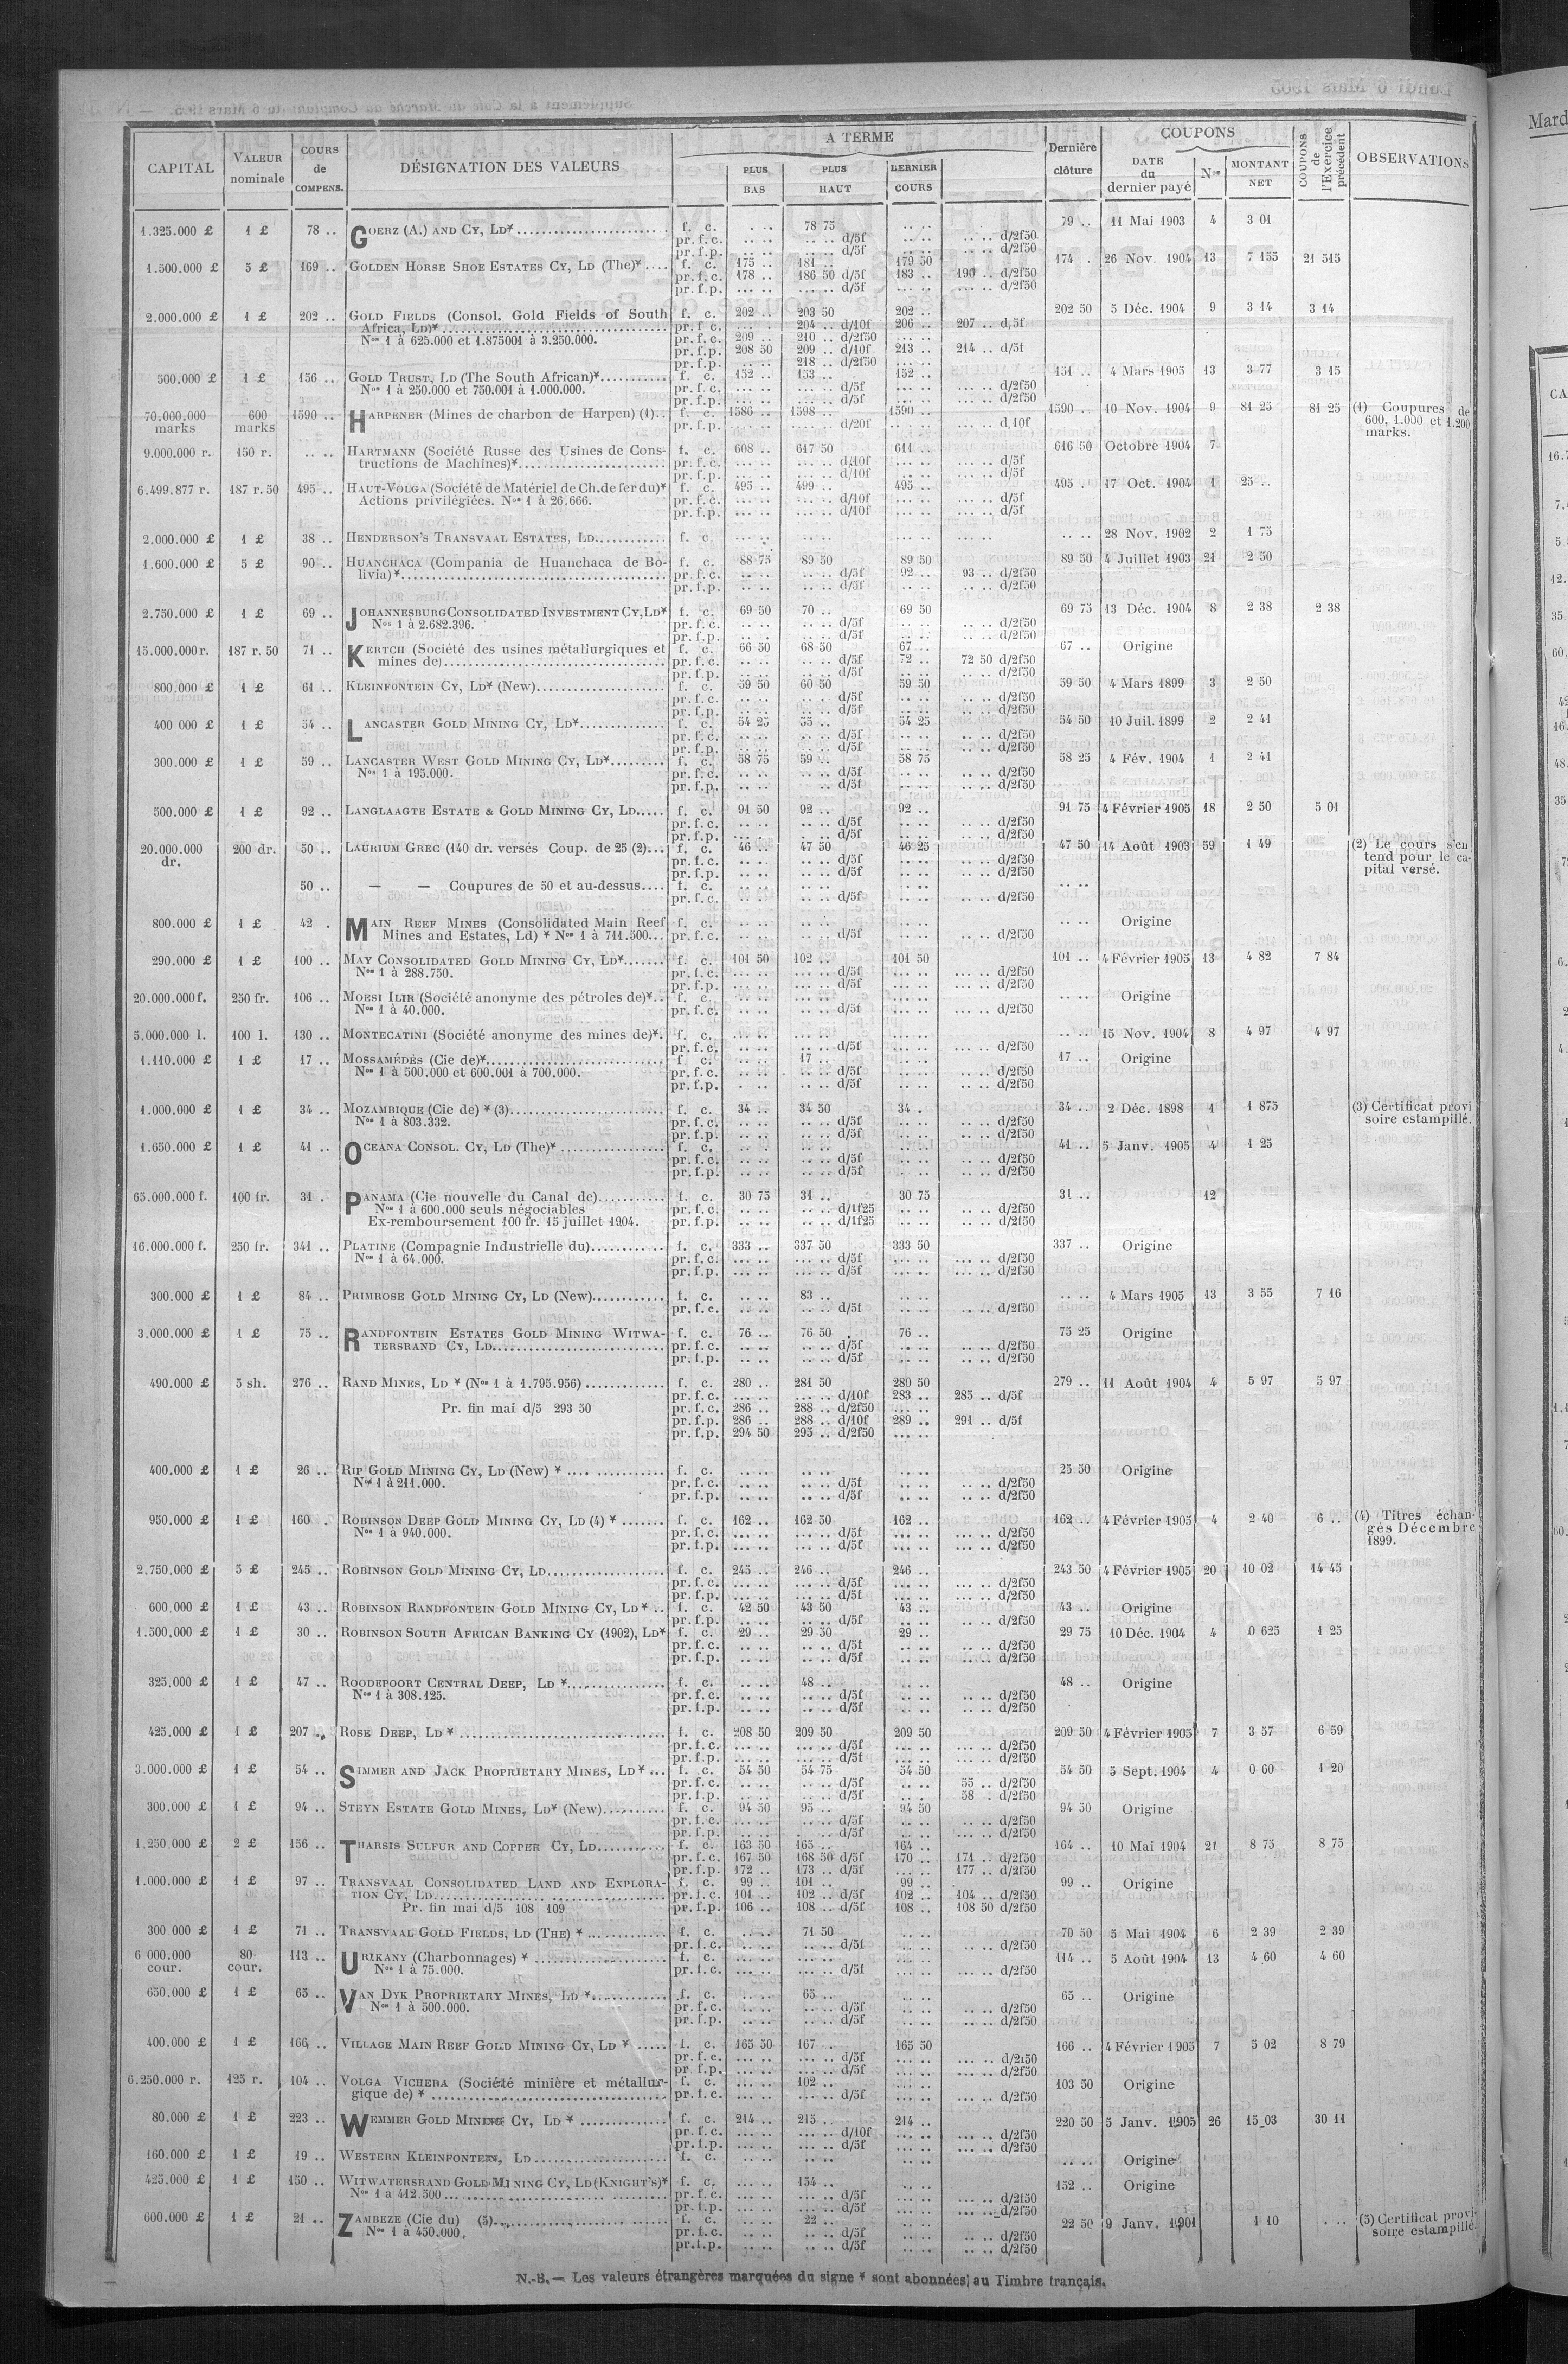 CAPITAL | VALEUR nominale | COURS de COMPENS. | DÉSIGNATION DES VALEURS | A TERME | PLUS BAS | PLUS HAUT | DERNIER COURS | Dernière clôture | COUPONS | DATE du dernier payé | Nos | MONTANT NET | COUPONS de l'Exercice précédent | OBSERVATIONS
1.325.000 £ | 1 £ | 78 .. | GOERZ (A.) AND CY, LD* | f. c. | 78 75 | 79 .. | 11 Mai 1903 | 4 | 3 01
pr. f. c. | d/5f | d/2f50
pr. f. p. | d/5f | d/2f50
1.500.000 £ | 5 £ | 169 .. | GOLDEN HORSE SHOE ESTATES CY, LD (The)* | f. c. | 175 .. | 181 .. | 179 50 | 174 . | 26 Nov. 1904 | 13 | 7 155 | 21 515
pr. f. c. | 178 .. | 186 50 d/5f | 183 .. | 190 .. d/2f50
pr. f. p. | d/5f | d/2f50
2.000.000 £ | 1 £ | 202 .. | GOLD FIELDS (Consol. Gold Fields of South | f. c. | 202 .. | 203 50 | 202 .. | 202 50 | 5 Déc. 1904 | 9 | 3 14 | 3 14
Africa, LD)* | pr. f. c. | 204 .. d/10f | 206 .. | 207 .. d/5f
Nos 1 à 625.000 et 1.875001 à 3.250.000. | pr. f. c. | 209 .. | 210 .. d/2f50
pr. f. p. | 208 50 | 209 .. d/10f | 213 .. | 214 .. d/5f
pr. f. p. | 218 .. d/2f50
500.000 £ | 1 £ | 156 .. | GOLD TRUST, LD (The South African)* | f. c. | 152 .. | 153 .. | 152 .. | 151 .. | 4 Mars 1905 | 13 | 3 77 | 3 15
Nos 1 à 250.000 et 750.001 à 1.000.000. | pr. f. c. | d/5f | d/2f50
pr. f. p. | d/5f | d/2f50
70.000.000 marks | 600 marks | 1590 .. | HARPENER (Mines de charbon de Harpen) (1) | f. c. | 1586 .. | 1598 .. | 1590 .. | 1590 .. | 10 Nov. 1904 | 9 | 81 25 | 81 25 | (1) Coupures de 600, 1.000 et 1.200 marks.
pr. f. p. | d/20f | d/10f
9.000.000 r. | 150 r. | .. .. | HARTMANN (Société Russe des Usines de Cons- | f. c. | 608 .. | 617 50 | 611 .. | 616 50 | Octobre 1904 | 7
tructions de Machines)* | pr. f. c. | d/10f | d/5f
pr. f. p. | d/10f | d/5f
6.499.877 r. | 187 r. 50 | 495 .. | HAUT-VOLGA (Société de Matériel de Ch. de fer du)* | f. c. | 495 .. | 499 .. | 495 .. | 495 . | 17 Oct. 1904 | 1 | 25 ..
Actions privilégiées. Nos 1 à 26.666. | pr. f. c. | d/10f | d/5f
pr. f. p. | d/10f | d/5f
2.000.000 £ | 1 £ | 38 .. | HENDERSON'S TRANSVAAL ESTATES, LD | f. c. | .. .. | 28 Nov. 1902 | 2 | 1 75
1.600.000 £ | 5 £ | 90 .. | HUANCHACA (Compania de Huanchaca de Bo- | f. c. | 88 75 | 89 50 | 89 50 | 89 50 | 4 Juillet 1903 | 21 | 2 50
livia)* | pr. f. c. | d/5f | 92 .. | 93 .. d/2f50
pr. f. p. | d/5f | d/2f50
2.750.000 £ | 1 £ | 69 .. | JOHANNESBURG CONSOLIDATED INVESTMENT CY, LD* | f. c. | 69 50 | 70 .. | 69 50 | 69 75 | 13 Déc. 1904 | 8 | 2 38 | 2 38
Nos 1 à 2.682.396. | pr. f. c. | d/5f | d/2f50
pr. f. p. | d/5f | d/2f50
15.000.000 r. | 187 r. 50 | 71 .. | KERTCH (Société des usines métallurgiques et | f. c. | 66 50 | 68 50 | 67 .. | 67 .. | Origine
mines de) | pr. f. c. | d/5f | 72 .. | 72 50 d/2f50
pr. f. p. | d/5f | d/2f50
800.000 £ | 1 £ | 61 .. | KLEINFONTEIN CY, LD* (New) | f. c. | 59 50 | 60 50 | 59 50 | 59 50 | 4 Mars 1899 | 3 | 2 50
pr. f. c. | d/5f | d/2f50
pr. f. p. | d/5f | d/2f50
400 000 £ | 1 £ | 54 .. | LANCASTER GOLD MINING CY, LD* | f. c. | 54 25 | 55 .. | 54 25 | 54 50 | 10 Juil. 1899 | 2 | 2 41
pr. f. c. | d/5f | d/2f50
pr. f. p. | d/5f | d/2f50
300.000 £ | 1 £ | 59 .. | LANCASTER WEST GOLD MINING CY, LD* | f. c. | 58 75 | 59 .. | 58 75 | 58 25 | 4 Fév. 1904 | 1 | 2 41
Nos 1 à 195.000. | pr. f. c. | d/5f | d/2f50
pr. f. p. | d/5f | d/2f50
500.000 £ | 1 £ | 92 .. | LANGLAAGTE ESTATE & GOLD MINING CY, LD | f. c. | 91 50 | 92 .. | 92 .. | 91 75 | 4 Février 1905 | 18 | 2 50 | 5 01
pr. f. c. | d/5f | d/2f50
pr. f. p. | d/5f | d/2f50
20.000.000 dr. | 200 dr. | 50 .. | LAURIUM GREC (140 dr. versés Coup. de 25 (2) | f. c. | 46 .. | 47 50 | 46 25 | 47 50 | 14 Août 1903 | 59 | 1 49 | (2) Le cours s'en tend pour le ca- pital versé.
pr. f. c. | d/5f | d/2f50
pr. f. p. | d/5f | d/2f50
50 .. | — — Coupures de 50 et au-dessus | f. c. | .. ..
pr. f. c. | d/5f | d/2f50
800.000 £ | 1 £ | 42 . | MAIN REEF MINES (Consolidated Main Reef | f. c. | .. .. | Origine
Mines and Estates, Ld) * Nos 1 à 711.500 | pr. f. c. | d/5f | d/2f50
290.000 £ | 1 £ | 100 .. | MAY CONSOLIDATED GOLD MINING CY, LD* | f. c. | 101 50 | 102 .. | 101 50 | 101 .. | 4 Février 1905 | 13 | 4 82 | 7 84
Nos 1 à 288.750. | pr. f. c. | d/5f | d/2f50
pr. f. p. | d/5f | d/2f50
20.000.000 f. | 250 fr. | 106 .. | MOESI ILIR (Société anonyme des pétroles de)* | f. c. | .. .. | Origine
Nos 1 à 40.000. | pr. f. c. | d/5f | d/2f50
5.000.000 l. | 100 l. | 130 .. | MONTECATINI (Société anonyme des mines de)* | f. c. | .. .. | 15 Nov. 1904 | 8 | 4 97 | 4 97
pr. f. c. | d/5f | d/2f50
1.110.000 £ | 1 £ | 17 .. | MOSSAMÉDÈS (Cie de)* | f. c. | 17 .. | 17 .. | Origine
Nos 1 à 500.000 et 600.001 à 700.000. | pr. f. c. | d/5f | d/2f50
pr. f. p. | d/5f | d/2f50
1.000.000 £ | 1 £ | 34 .. | MOZAMBIQUE (Cie de) * (3) | f. c. | 34 .. | 34 50 | 34 . | 34 .. | 2 Déc. 1898 | 1 | 1 875 | (3) Certificat provi soire estampillé.
Nos 1 à 803.332. | pr. f. c. | d/5f | d/2f50
pr. f. p. | d/5f | d/2f50
1.650.000 £ | 1 £ | 41 .. | OCEANA CONSOL. CY, LD (The)* | f. c. | 41 .. | 5 Janv. 1905 | 4 | 1 25
pr. f. c. | d/5f | d/2f50
pr. f. p. | d/5f | d/2f50
65.000.000 f. | 100 fr. | 31 . | PANAMA (Cie nouvelle du Canal de) | f. c. | 30 75 | 31 .. | 30 75 | 31 .. | 12
Nos 1 à 600.000 seuls négociables | pr. f. c. | d/1f25 | d/2f50
Ex-remboursement 100 fr. 15 juillet 1904. | pr. f. p. | d/1f25 | d/2f50
16.000.000 f. | 250 fr. | 341 .. | PLATINE (Compagnie Industrielle du) | f. c. | 333 .. | 337 50 | 333 50 | 337 .. | Origine
Nos 1 à 64.000. | pr. f. c. | d/5f | d/2f50
pr. f. p. | d/5f | d/2f50
300.000 £ | 1 £ | 84 .. | PRIMROSE GOLD MINING CY, LD (New) | f. c. | 83 .. | .. .. | 4 Mars 1905 | 13 | 3 55 | 7 16
pr. f. c. | d/5f | d/2f50
3.000.000 £ | 1 £ | 75 .. | RANDFONTEIN ESTATES GOLD MINING WITWA- | f. c. | 76 .. | 76 50 | 76 .. | 75 25 | Origine
TERSRAND CY, LD | pr. f. c. | d/5f | d/2f50
pr. f. p. | d/5f | d/2f50
490.000 £ | 5 sh. | 276 .. | RAND MINES, LD * (Nos 1 à 1.795.956) | f. c. | 280 .. | 281 50 | 280 50 | 279 .. | 11 Août 1904 | 4 | 5 97 | 5 97
pr. f. c. | d/10f | 283 .. | 285 .. d/5f
Pr. fin mai d/5 293 50 | pr. f. c. | 286 .. | 288 .. d/2f50
pr. f. p. | 286 .. | 288 .. d/10f | 289 .. | 291 .. d/5f
pr. f. p. | 294 50 | 295 .. d/2f50
400.000 £ | 1 £ | 26 .. | RIP GOLD MINING CY, LD (New) * | f. c. | 25 50 | Origine
Nos 1 à 211.000. | pr. f. c. | d/5f | d/2f50
pr. f. p. | d/5f | d/2f50
950.000 £ | 1 £ | 160 . | ROBINSON DEEP GOLD MINING CY, LD (4) * | f. c. | 162 .. | 162 50 | 162 .. | 162 .. | 4 Février 1905 | 4 | 2 40 | 6 .. | (4) Titres échan- gés Décembre 1899.
Nos 1 à 940.000. | pr. f. c. | d/5f | d/2f50
pr. f. p. | d/5f | d/2f50
2.750.000 £ | 5 £ | 245 .. | ROBINSON GOLD MINING CY, LD | f. c. | 245 .. | 246 .. | 246 .. | 243 50 | 4 Février 1905 | 20 | 10 02 | 14 45
pr. f. c. | d/5f | d/2f50
pr. f. p. | d/5f | d/2f50
600.000 £ | 1 £ | 43 .. | ROBINSON RANDFONTEIN GOLD MINING CY, LD * | f. c. | 42 50 | 43 50 | 43 .. | 43 .. | Origine
pr. f. p. | d/5f | d/2f50
1.500.000 £ | 1 £ | 30 .. | ROBINSON SOUTH AFRICAN BANKING CY (1902), LD* | f. c. | 29 .. | 29 50 | 29 .. | 29 75 | 10 Déc. 1904 | 4 | 0 625 | 1 25
pr. f. c. | d/5f | d/2f50
pr. f. p. | d/5f | d/2f50
325.000 £ | 1 £ | 47 .. | ROODEPOORT CENTRAL DEEP, LD * | f. c. | 48 .. | 48 .. | Origine
Nos 1 à 308.125. | pr. f. c. | d/5f | d/2f50
pr. f. p. | d/5f | d/2f50
425.000 £ | 1 £ | 207 .. | ROSE DEEP, LD * | f. c. | 208 50 | 209 50 | 209 50 | 209 50 | 4 Février 1905 | 7 | 3 57 | 6 59
pr. f. c. | d/5f | d/2f50
pr. f. p. | d/5f | d/2f50
3.000.000 £ | 1 £ | 54 .. | SIMMER AND JACK PROPRIETARY MINES, LD * | f. c. | 54 50 | 54 75 | 54 50 | 54 50 | 5 Sept. 1904 | 4 | 0 60 | 1 20
pr. f. c. | d/5f | 55 .. d/2f50
pr. f. p. | d/5f | 58 . d/2f50
300.000 £ | 1 £ | 94 .. | STEYN ESTATE GOLD MINES, LD* (New) | f. c. | 94 50 | 95 .. | 94 50 | 94 50 | Origine
pr. f. c. | d/5f | d/2f50
pr. f. p. | d/5f | d/2f50
1.250.000 £ | 2 £ | 156 .. | THARSIS SULFUR AND COPPER CY, LD | f. c. | 163 50 | 165 .. | 164 .. | 164 .. | 10 Mai 1904 | 21 | 8 75 | 8 75
pr. f. c. | 167 50 | 168 50 d/5f | 170 .. | 171 .. d/2f50
pr. f. p. | 172 .. | 173 .. d/5f | 177 .. d/2f50
1.000.000 £ | 1 £ | 97 .. | TRANSVAAL CONSOLIDATED LAND AND EXPLORA- | f. c. | 99 .. | 101 .. | 99 .. | 99 .. | Origine
TION CY, LD | pr. f. c. | 101 .. | 102 .. d/5f | 102 .. | 104 .. d/2f50
Pr. fin mai d/5 108 109 | pr. f. p. | 106 .. | 108 .. d/5f | 108 .. | 108 50 d/2f50
300 000 £ | 1 £ | 71 .. | TRANSVAAL GOLD FIELDS, LD (THE) * | f. c. | 71 50 | 70 50 | 5 Mai 1904 | 6 | 2 39 | 2 39
pr. f. c. | d/5f | d/2f50
6 000.000 cour. | 80 cour. | 113 .. | URIKANY (Charbonnages) * | f. c. | 114 .. | 5 Août 1904 | 13 | 4 60 | 4 60
Nos 1 à 75.000. | pr. f. c. | d/5f | d/2f50
650.000 £ | 1 £ | 65 .. | VAN DYK PROPRIETARY MINES, LD * | f. c. | 65 .. | 65 .. | Origine
Nos 1 à 500.000. | pr. f. c. | d/5f | d/2f50
pr. f. p. | d/5f | d/2f50
400.000 £ | 1 £ | 166 .. | VILLAGE MAIN REEF GOLD MINING CY, LD * | f. c. | 165 50 | 167 .. | 165 50 | 166 .. | 4 Février 1905 | 7 | 5 02 | 8 79
pr. f. c. | d/5f | d/2f50
pr. f. p. | d/5f | d/2f50
6.250.000 r. | 125 r. | 104 .. | VOLGA VICHERA (Société minière et métallur- | f. c. | 102 .. | 103 50 | Origine
gique de) * | pr. f. c. | d/5f | d/2f50
80.000 £ | 1 £ | 223 .. | WEMMER GOLD MINING CY, LD * | f. c. | 214 .. | 215 .. | 214 .. | 220 50 | 5 Janv. 1905 | 26 | 15 03 | 30 11
pr. f. c. | d/10f | d/2f50
pr. f. p. | d/5f | d/2f50
160.000 £ | 1 £ | 19 .. | WESTERN KLEINFONTEIN, LD | f. c. | .. .. | Origine
425.000 £ | 1 £ | 150 .. | WITWATERSRAND GOLD MINING CY, LD (KNIGHT'S)* | f. c. | 154 .. | 152 .. | Origine
Nos 1 à 412.500 | pr. f. c. | d/5f | d/2f50
pr. f. p. | d/5f | d/2f50
600.000 £ | 1 £ | 21 .. | ZAMBEZE (Cie du) (5) | f. c. | 22 .. | 22 50 | 9 Janv. 1901 | 1 10 | . .. | (5) Certificat provi- soire estampillé.
Nos 1 à 450.000, | pr. f. c. | d/5f | d/2f50
pr. f. p. | d/5f | d/2f50
N.-B. — Les valeurs étrangères marquées du signe * sont abonnées au Timbre français.
Mard